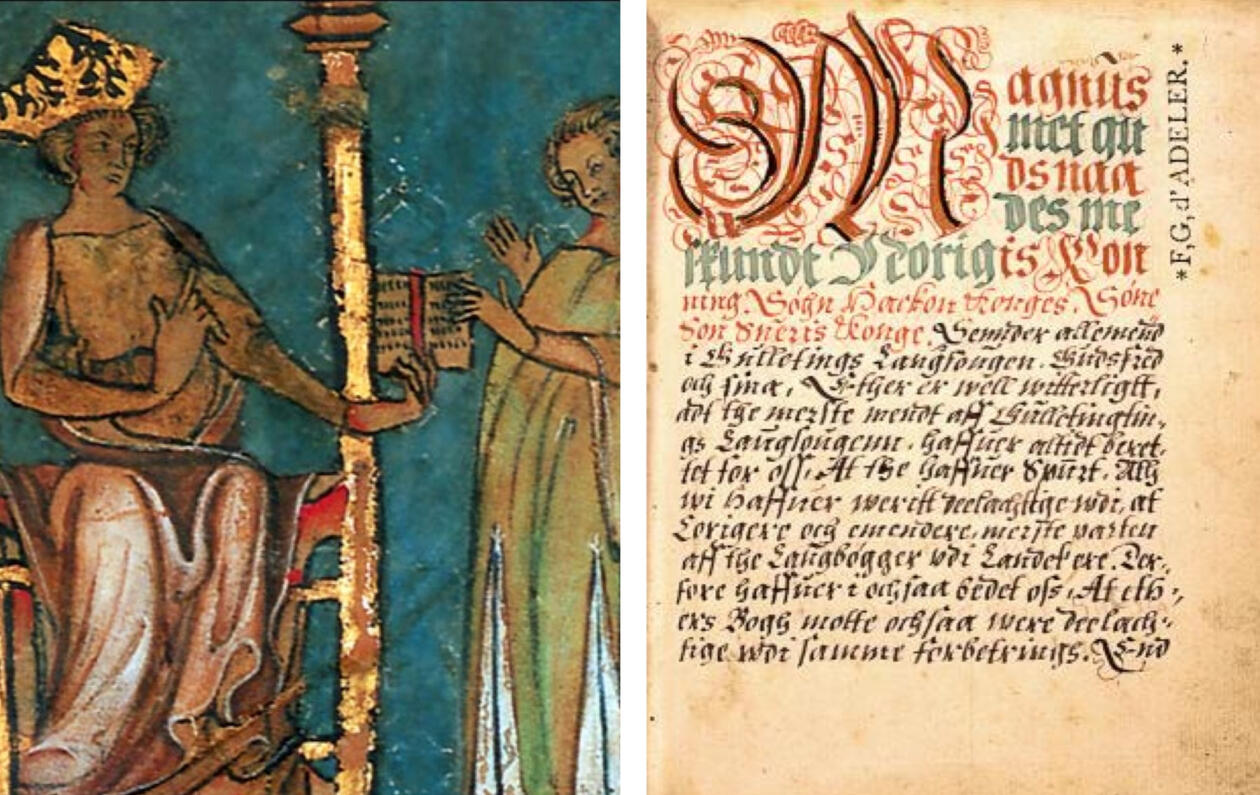 Magnus
met gu
ds naa
des me
skundt Norigis Kon
ning Søgn Hackon Konges. Søne
Søn Sueris Konge. Sender allemend
i Gulletings Laugsougen. Gudsfred
och sina, Ether er well witterligtt,
adt the merste mendt aff Gulletingtin,
gs Laugsougenn, haffuer altidt beret,
tet for oss, At the haffuer Spurt. Ath
wi haffuer weritt deelachtige wdi, at
Corigere och emendere, merste parten
aff the Laugbøgger wdi Landet ere. Der,
fore haffuer i ochsaa bedet oss, At eth,
ers Bogh motte ochsaa were deelach,
tige wdi samme forbetrings. End
*F,G,d'ADELER.*